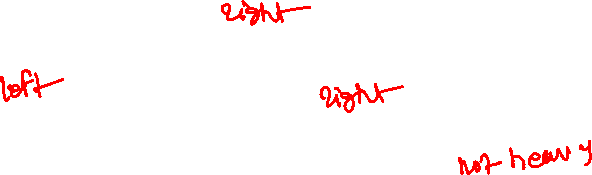 right
left
right
not heavy